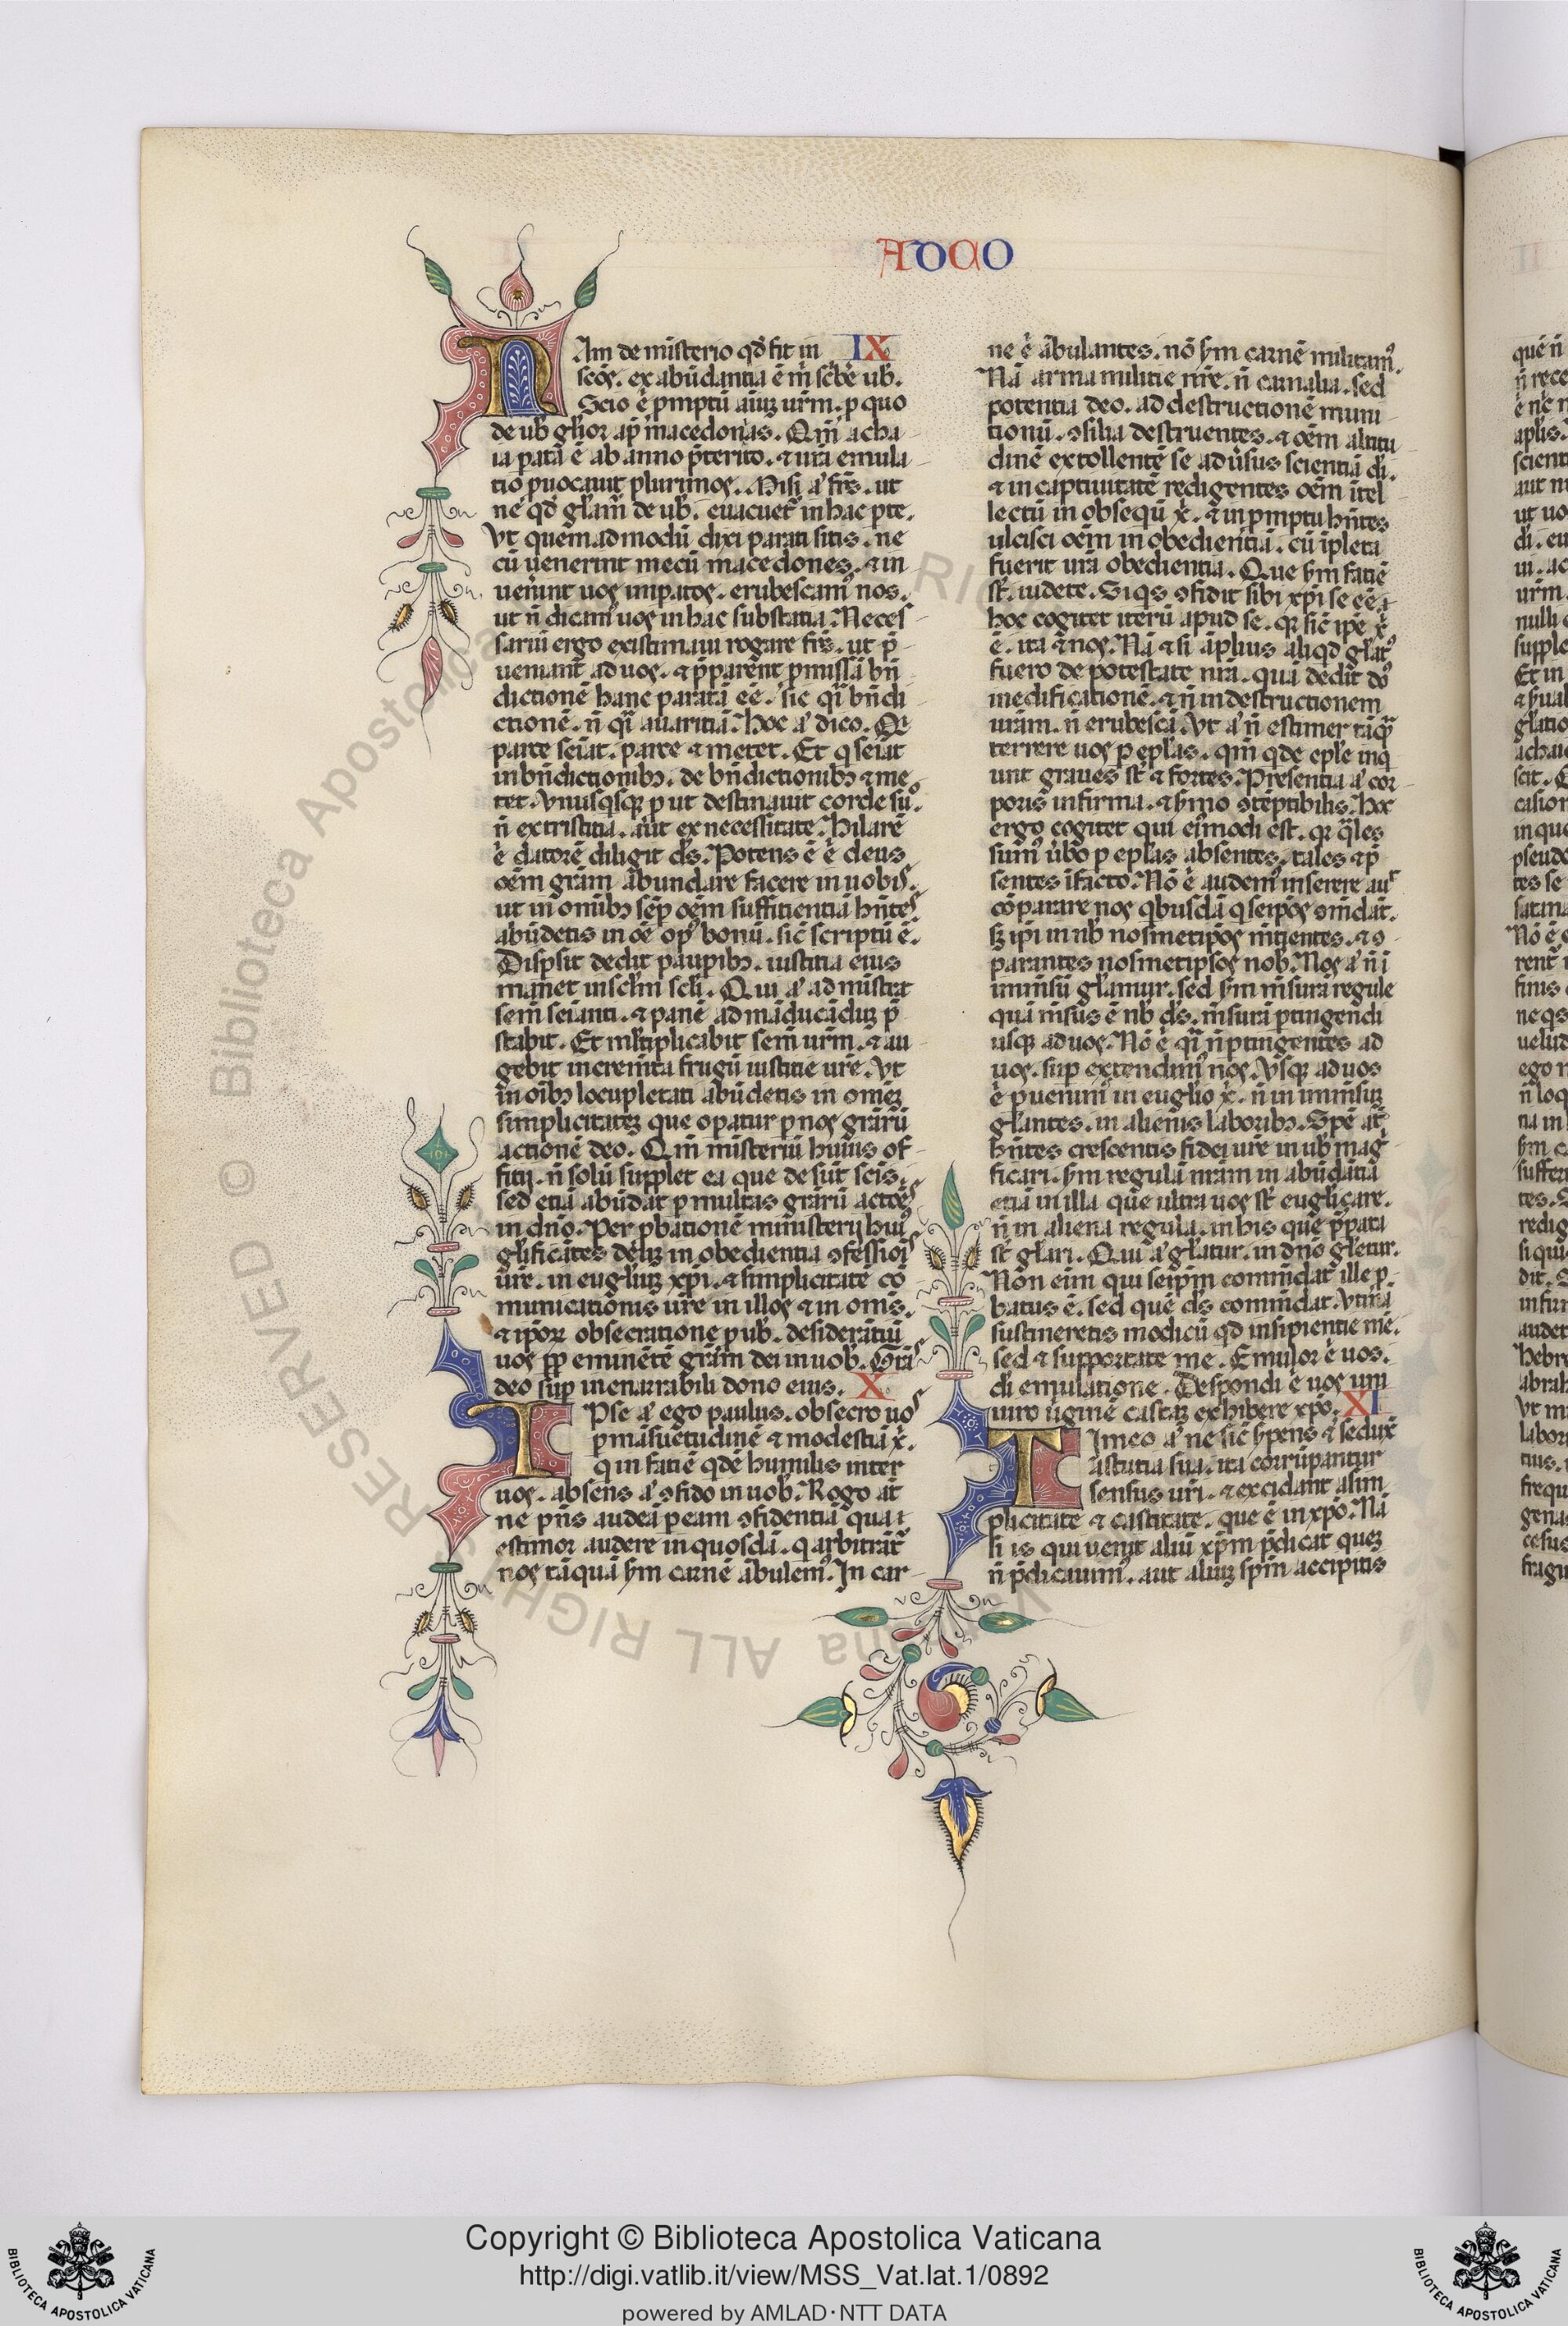 AD CO
IX
NAm de misterio qd̄ fit in
scōs. ex abūdantia ē m̄ sc̄bē ub̄.
Scio ē pmptū aīuȝ ur̄m. p quo
de ub̄ gl̄ior ap̄ macedonas. Qm̄ acha
ia pata ē ab anno p̄terito. ⁊ ur̄a emula
tio puocauit plurimos. Misi a' fr̄s. ut
ne qd̄ gl̄am̄ de ub̄. euacuet᷑ in hac pte.
Vt quemadmodū dixi parati sitis. ne
cū uenerint mecū macedones. ⁊ in
uen̄int uos impatos. erubescamꝰ nos.
ut n̄ dicamꝰ uos in hac substātia. Neces
sariū ergo existimaui rogare fr̄s. ut p̄
ueniant ad uos. ⁊ p̄parēnt pmissā bn̄
dictionē hanc paratā ēē. sic qi bn̄di
ctionē. n̄ qi auaritiā. Hoc a' dico. Qi
parce seīat. parce ⁊ metet. Et q seīat
in bn̄dictionibȝ. de bn̄dictionibȝ ⁊ me
tet. Vnusqsqȝ p ut destinauit corde suo.
n̄ ex tristitia. aut ex necessitate. Hilarē
ē datorē diligit ds̄. Potens ē ē deus
oēm grām abundare facere in uobis.
ut in omībȝ sēp oēm suffitientiā hn̄tes
abūdetis in oē opꝰ bonū. sic scriptū ē.
Dispsit dedit paupibȝ. iustitia eius
manet in sclm̄ scli. Qui a' admīstrat
semē seīanti. ⁊ panē ad māducādūȝ p̄
stabit. Et ml̄tiplicabit semē urm̄. ⁊ au
gebit incremīta frugū iustitie ur̄e. Vt
in oībȝ locupletati abūdetis in omēȝ
simplicitateȝ que opatur p nos grārū
actionē deo. Qm̄ misteriū huius of
fitij. n̄ solū supplet ea que desūt scīs.
sed etiā abūdat p multas grārū actōes
in dn̄o. Per pbationē ministerij huiꝰ
gl̄ificātes deūȝ in obedientia ꝯfessiōis
ur̄e. in eugl̄iuȝ xp̄i. ⁊ simplicitate cō
municationis ur̄e in illos ⁊ in om̄s.
⁊ ip̄orȝ obsecratione p ub̄. desiderātiū
uos pp eminētē grām dei in uob̄. Grās
deo sup inenarrabili dono eius. X
IPse a' ego paulus. obsecro uos
p māsuetudinē ⁊ modestiā x̄.
q in fatiē qdē humilis inter
uos. absens a' ꝯfido in uob̄. Rogo at̄
ne pn̄s audeā p eam ꝯfidentiā qua
estimor audere in quosdā. q arbitrāt᷑
nos tāquā s̄m carnē ābulemꝰ. In car
ne ē ābulantes. nō s̄m carnē militamꝰ.
Nā arma militie nr̄e. n̄ carnalia. sed
potentia deo. ad destructionē muni
tionū. ꝯsilia destruentes. ⁊ oēm altitu
dinē extollentē se aduꝰsus scientiā di.
⁊ in captiuitatē redigentes oēm ītel
lectū in obsequ x̄. ⁊ in pmptu hn̄tes
ulcisci oēm inobedientiā. cū īpleta
fuerit ur̄a obedientia. Que s̄m fatiē
st̄. uidete. Siqs ꝯfidit sibi xp̄i se ēē.
hoc cogitet iterū apud se. qȝ sic ip̄e x̄
ē. ita ⁊ nos. Nā ⁊ si āplius aliqd gl̄atꝰ
fuero de potestate nr̄a. quā dedit dō
in edificationē. ⁊ n̄ in destructionem
urām. n̄ erubescā. Vt a' n̄ estimer tāq̄
terrere uos p eplas. qm̄ qdē eple inq
unt graues st̄ ⁊ fortes. Presentia a' cor
poris infirma. ⁊ s̄mo ꝯtēptibilis. Hoc
ergo cogitet qui ei'modi est. qȝ qles
sumꝰ ūbo p eplas absentes. tales ⁊ p̄
sentes ī facto. Nō ē audemꝰ inserere aut
cōparare nos qbusdā q seip̄os ꝯmdāt.
sȝ ip̄i in nb̄ nosmetip̄os mītientes. ⁊ ꝯ
parantes nosmetipsos nob̄. Nos a' n̄ i
imn̄sū gl̄amur. sed s̄m m̄surā regule
quā m̄sus ē nb̄ ds̄. m̄surā ptingendi
usqȝ ad uos. Nō ē qi n̄ ptingentes ad
uos. sup extendimꝰ nos. Vsqȝ ad uos
ē puenimꝰ in euglio x̄. n̄ in imm̄suȝ
gl̄antes. in alienis laboribȝ. Spē at̄
hn̄tes crescentis fidei ur̄e in ub̄ mag
ficari. s̄m regulā nrām in abūdātiā
etiā in illa que ultra uos st̄ euglicare.
n̄ in aliena regula. in his que p̄pata
st̄ gl̄ari. Qui a' gl̄atur. in dn̄o gl̄etur.
Non eīm qui seip̄m commdat ille p
batus ē. sed quē ds̄ commdat. Vtinā
sustineretis modicū qd insipientie me.
sed ⁊ supportate me. Emulor ē uos.
di emulatione. Despondi ē uos uni
uiro ūginē castaȝ exhibere xp̄o. XI
TImeo a' ne sic s̄pens ⁊ sedux̄
astutia sua. ita corrūpantur
sensus ur̄i. ⁊ excidant a sim
plicitate ⁊ castitate. que ē in xp̄o. Nā
si is qui uenit aliū xp̄m p̄dicat queȝ
n̄ p̄dicauimꝰ. aut aliuȝ sp̄m accipitis
© Biblioteca Apostolica Vaticana ALL RIGHTS RESERVED
Copyright © Biblioteca Apostolica Vaticana
http://digi.vatlib.it/view/MSS_Vat.lat.1/0892
powered by AMLAD·NTT DATA
BIBLIOTECA APOSTOLICA VATICANA
BIBLIOTECA APOSTOLICA VATICANA